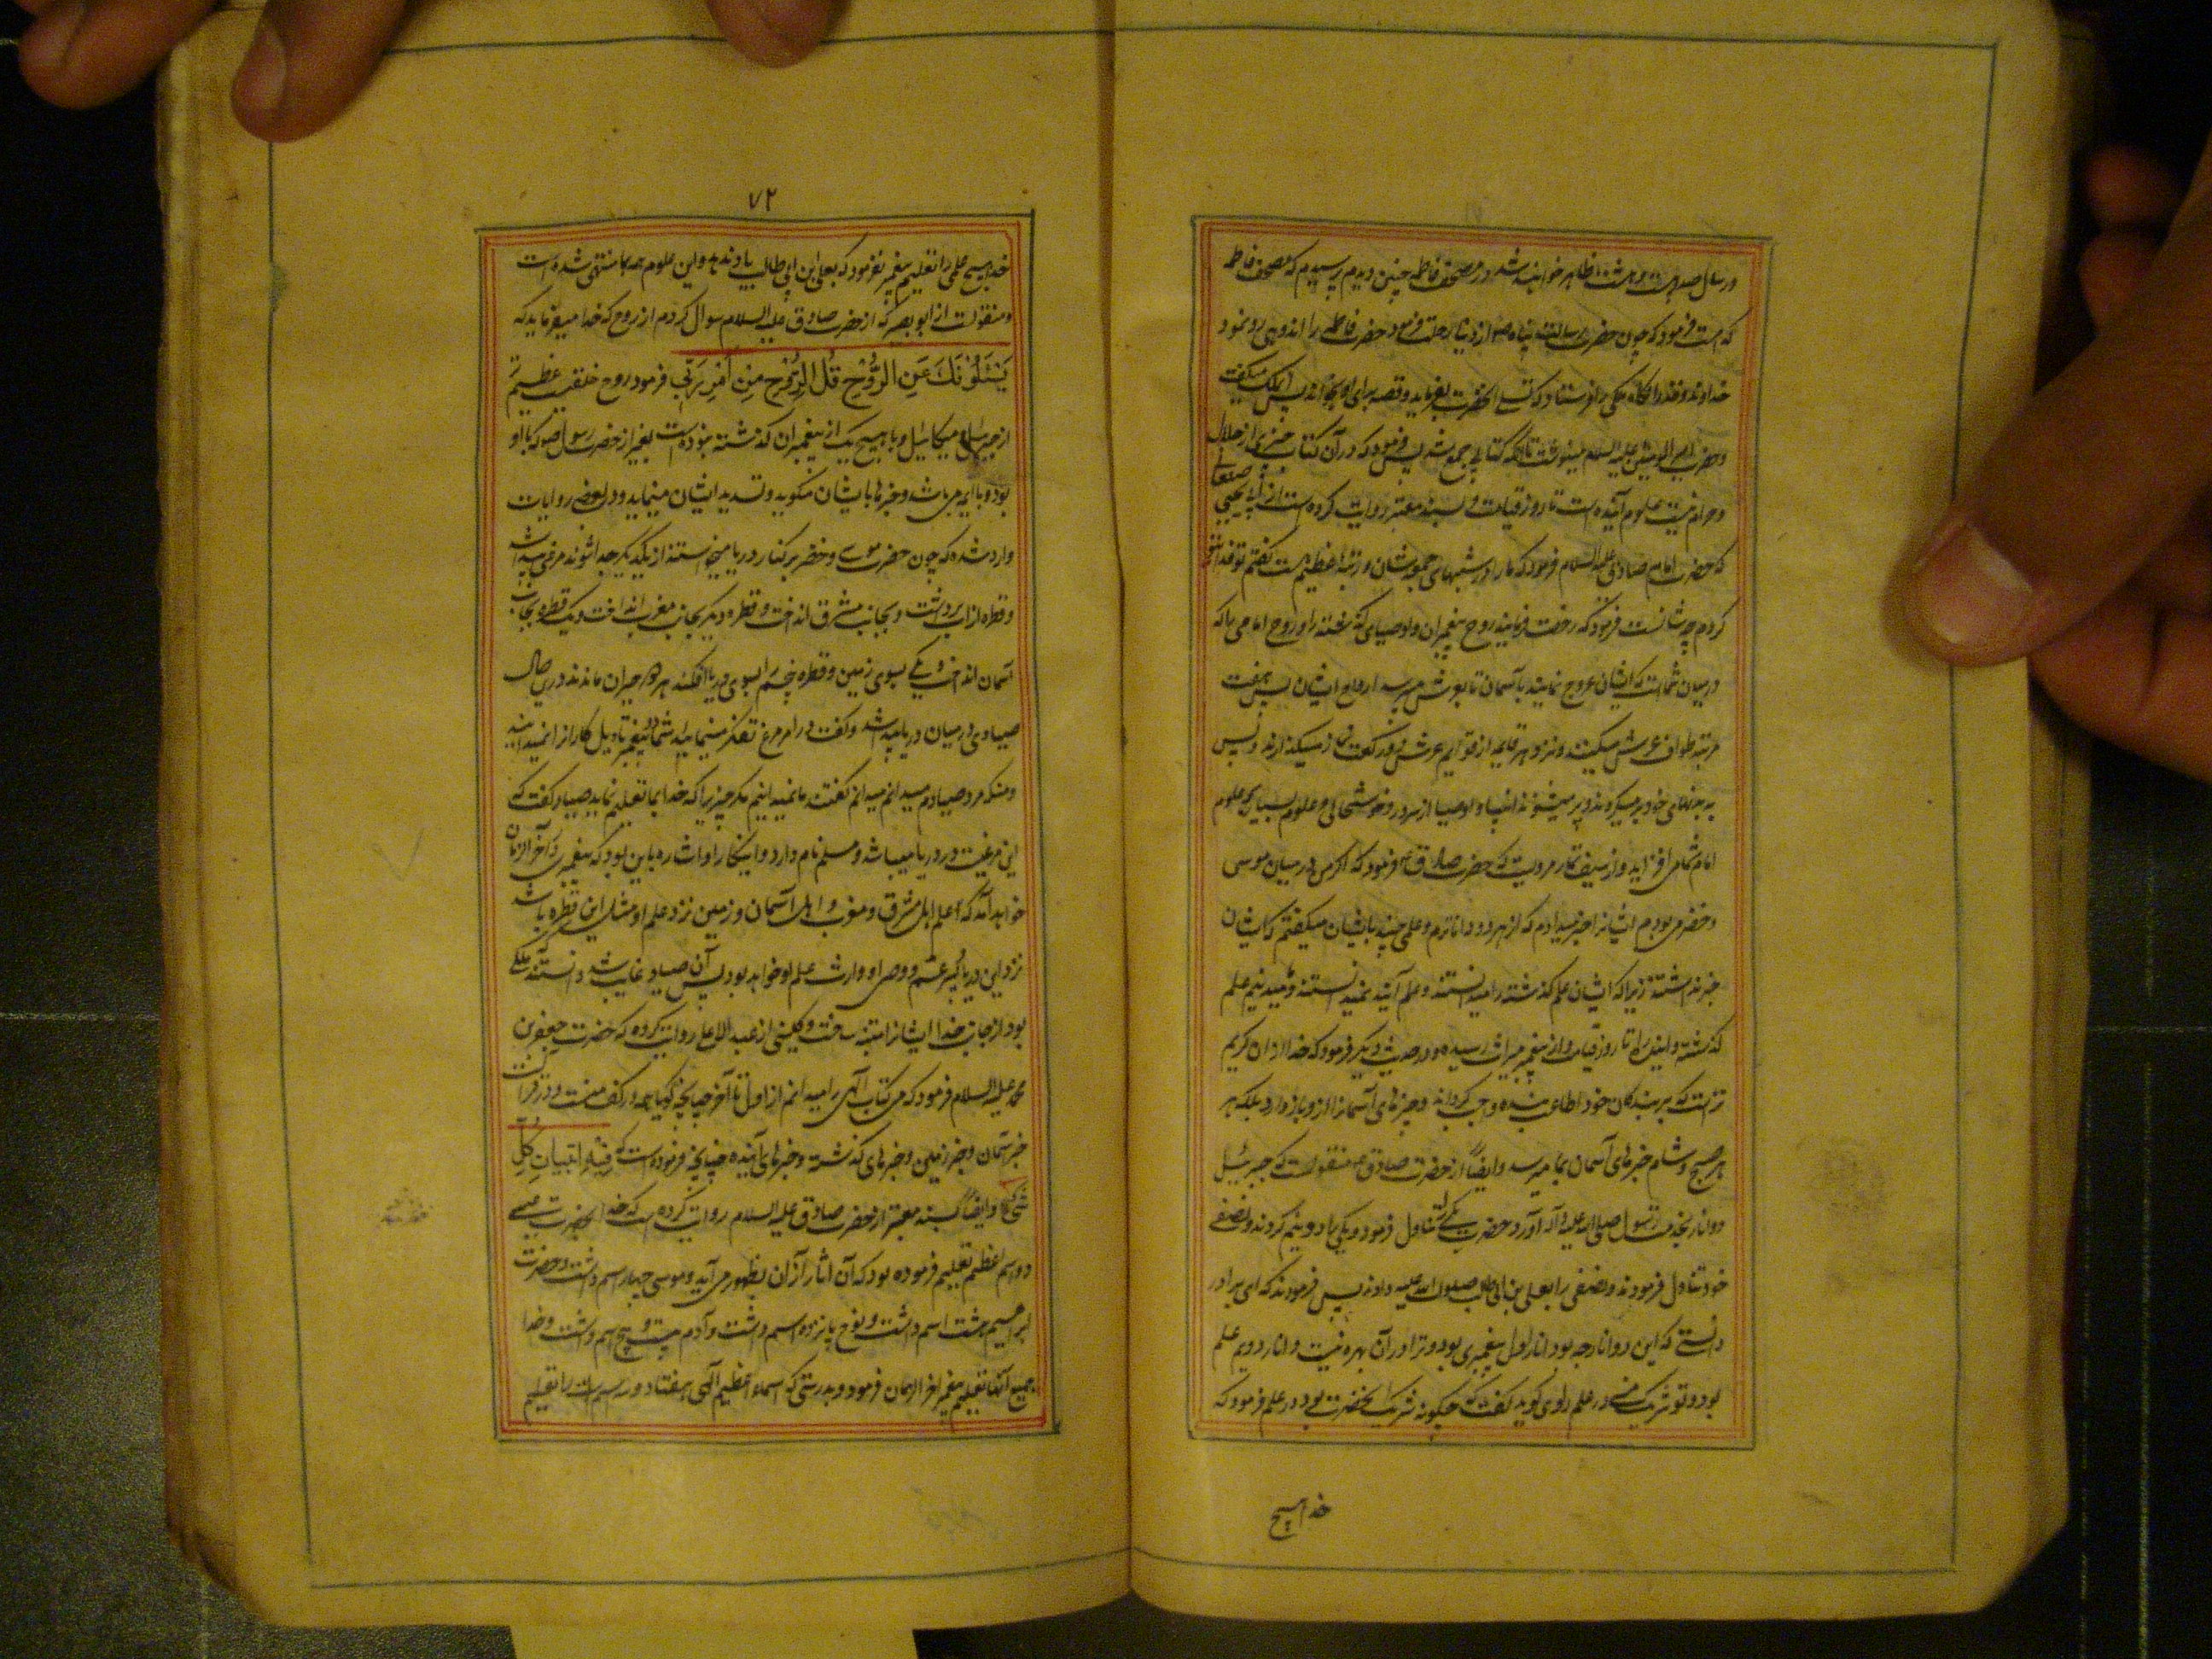 در سال صد و بیست و هشت ظاهر خواهند شد در مصحف فاطمه چنین دیدم پرسیدم که مصحف فاطمه
کدامست فرمود که چون حضرت رسالت پناه ص از دنیا رحلت فرمود حضرت فاطمه را اندوهی رو نمود
خداوند ملکی را فرستاد که تسلی آنحضرت بفرماید و قصه برای او بخواند پس آن ملک میگفت
و حضرت امیر المومنین علیه السلام مینوشت تا آنکه کتابی جمع شد پس فرمود که در آن کتاب چیزی از حلال
و حرام نیست علوم آینده است تا روز قیامت و بسند معتبر روایت کرده است از ابی یحیی صنعانی
که حضرت امام صادق علیه السلام فرمود که ما را در شبهای جمعه شان و رتبه عظیم هست گفتم تو فدا شوم
کردم چه شانست فرمود که رخصت میفرمایند روح پیغمبران و اوصیای گذشته را و روح امامی را که
در میان شماست که ایشان عروج نمایند بآسمان تا بعرش میرسد ارواح ایشان پس هفت
مرتبه طواف عرش میکنند و نزد هر قایمه از قوایم عرش دو رکعت نماز میگذارند و پس
به بدنهای خود بر میگردند و پر میشوند انبیا و اوصیا از سرور و خوشحالی و علوم بسیار بر علوم
امام شما می افزاید و از سیف تمار مرویست که حضرت صادق ع فرمود که اگر من در میان موسی
و خضر می بودم ایشانرا خبر میدادم که از هر دو داناترم و علمی چند بایشان میگفتم که ایشان
خبر نداشتند زیرا که ایشان علم گذشته را میدانستند و علم آینده نمیدانستند و ما میدانیم علم
گذشته و آینده را تا روز قیامت و از پیغمبر بمیراث رسیده و در حدیث دیگر فرمود که خدا از آن کریم
تر است که بر بندگان خود اطاعت بنده واجب گرداند و چیزهای آسمانرا از او باز دارد بلکه هر
هر صبح و شام خبرهای آسمان بما میرسد و ایضاً از حضرت صادق ع منقولست که جبرئیل
دو انار بخدمت رسول صلی الله علیه و آله آورد حضرت یکی را تناول فرمود و یکی را دو نیم کردند و نصفی
خود تناول فرمودند و نصفی را بعلی بن ابی طالب صلوات الله علیه دادند پس فرمودند که ای برادر
دانستی که این دو انار چه بود انار اول پیغمبری بود و ترا در آن بهره نیست و انار دویم علم
بود و تو شریک منی در علم راوی گوید گفتم که چگونه شریک آنحضرت بود در علم فرمود که
خدا هیچ
۷۲
خدا هیچ علمی را تعلیم پیغمبر نفرمود که بعلی ابن ابی طالب یاد ندهد و این علوم همه بما منتهی شده است
و منقولست از ابو بصیر که از حضرت صادق علیه السلام سوال کردم از روح که خدا میفرماید که
یَسْئَلُونَكَ عَنِ الرُّوحِ قُلِ الرُّوحُ مِنْ اَمْرِ رَبّی فرمود روح خلقیست عظیمتر
از جبرئیل و میکائیل و با هیچ یک از پیغمبران گذشته نبوده است بغیر از حضرت رسول ص که با او
بود و با ایمه می باشد و خبرها بایشان میگوید و تسدید ایشان مینماید و در بعضی روایات
وارد شده که چون حضرت موسی و خضر بر کنار دریا میخواستند از یکدیگر جدا شوند مرغی پیدا شد
و قطره از آب برداشت و بجانب مشرق انداخت و قطره دیگر بجانب مغرب انداخت و یک قطره بجانب
آسمان انداخت و یکی بسوی زمین و قطره پنجم را بسوی دریا افکند هر دو حیران ماندند در این حال
صیادی در میان دریا پیدا شد و گفت در امر مرغ تفکر مینمائید شما دو پیغمبر تاویل کار او را نمیدانید
و من که مرد صیادم میدانم گفتند ما نمیدانیم مگر چیزی را که خدا بما تعلیم نماید صیاد گفت که
این مرغیست در دریا میباشد و مسلم نام دارد و اینکار او اشاره باین بود که پیغمبری در آخر الزمان
خواهد آمد که علم اهل مشرق و مغرب و اهل آسمان و زمین نزد علم او مثل این قطره باشد
نزد این دریا و پسر عم و وصی او وارث علم او خواهد بود پس آن صیاد غایب شد دانستند ملکی
بود از جانب خدا ایشانرا متنبه ساخت و کلینی از عبد الاعلی روایت کرده که حضرت جعفر بن
محمد علیه السلام فرمود که من کتاب الهی را میدانم از اول تا آخر چنانچه گویا همه در کف منست و در قرآنست
خبر آسمان و خبر زمین و خبرهای گذشته و خبرهای آینده چنانچه فرموده است که فِیْهِ تِبْیَانُ كُلِّ
شَیْءٍ و ایضاً بسند معتبر از حضرت صادق علیه السلام روایت کرده است که خدا بحضرت عیسی
دو اسم اعظم تعلیم فرموده بود که آن اثار از آن بظهور می آید و موسی چهار اسم داشت و حضرت
ابراهیم هشت اسم داشت و نوح پانزده اسم داشت و آدم بیست و پنج اسم داشت و خدا
جمیع آنها تعلیم پیغمبر آخر الزمان فرمود و بدرستی که اسماء اعظم الهی هفتاد و سه است را تعلیم